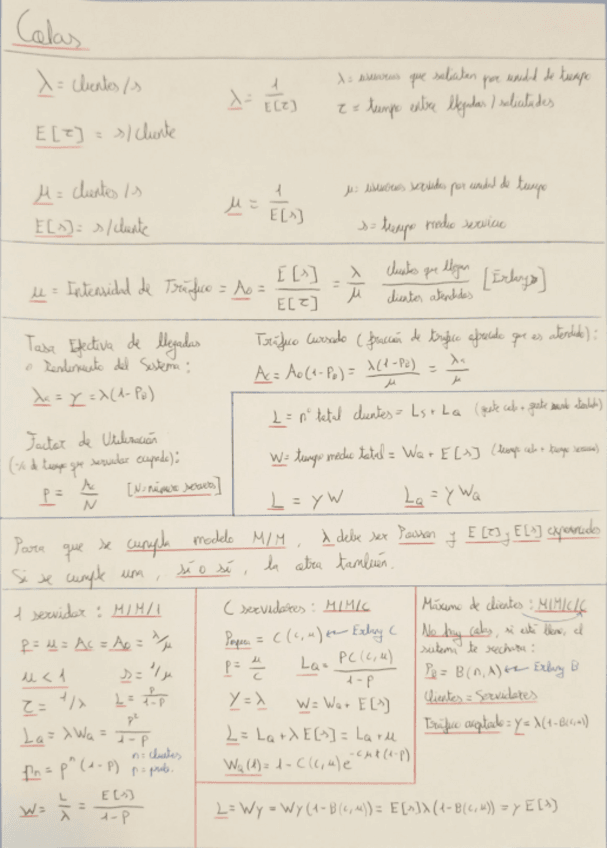 Colas
λ = clientes / s
λ = 1 / E[τ]
λ = usuarios que solicitan por unidad de tiempo
τ = tiempo entre llegadas / solicitudes
E[τ] = s/cliente
μ = clientes / s
μ = 1 / E[s]
μ: usuarios servidos por unidad de tiempo
E[s] = s/cliente
s = tiempo medio servicio
u = Intensidad de Tráfico = A₀ = E[s] / E[τ] = λ / μ clientes que llegan / clientes atendidos [Erlangs]
Tasa Efectiva de llegadas
o Rendimiento del Sistema:
λₐ = γ = λ(1-P_B)
Tráfico Cursado (fracción de tráfico ofrecido que es atendido):
A_c = A₀(1-P_B) = λ(1-P_B) / μ = λₐ / μ
Factor de Utilización
(% de tiempo que servidor ocupado):
ρ = A_c / N [N: número servers]
L = nº total clientes = L_s + L_Q (gente cola + gente siendo atendida)
W = tiempo medio total = W_Q + E[s] (tiempo cola + tiempo servicio)
L = γW L_Q = γW_Q
Para que se cumpla modelo M/M, λ debe ser Poisson y E[τ] y E[s] exponenciales
Si se cumple una, sí o sí, la otra también.
1 servidor: M/M/1
ρ = u = A_c = A₀ = λ/μ
u < 1 s = 1/μ
τ = 1/λ L = ρ / 1-ρ
L_Q = λW_Q = ρ² / 1-ρ
pₙ = ρⁿ(1-ρ) n = clientes
p = prob.
W = L / λ = E[s] / 1-ρ
C servidores: M/M/C
= C(c,u) ← Erlang C
ρ = u / c L_Q = ρC(c,u) / 1-ρ
γ = λ W = W_Q + E[s]
L = L_Q + λE[s] = L_Q + u
W_Q(t) = 1 - C(c,u)e^-cμt(1-ρ)
Máximo de clientes: M/M/C/C
No hay colas, si está lleno, el
sistema te rechaza:
P_B = B(n,A) ← Erlang B
Clientes = Servidores
Tráfico aceptado = γ = λ(1-B(c,u))
L = Wγ = Wγ(1-B(c,u)) = E[s]λ(1-B(c,u)) = γE[s]